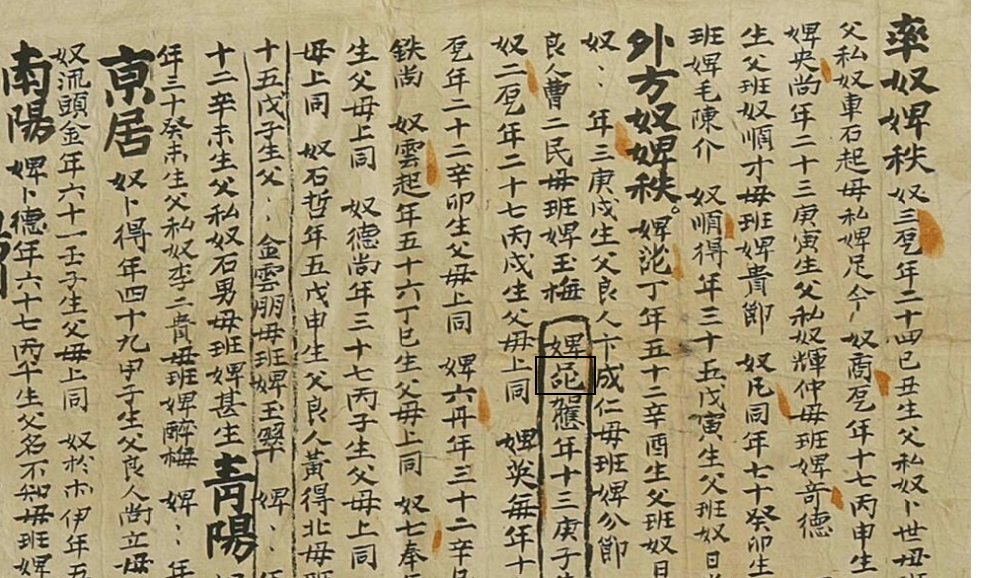 率奴婢秩 奴三석年二十四己丑生父私奴卜世毋班
父私奴車石起毋私婢足今 奴商석年十七丙申生
婢央尚年二十三庚寅生父私奴輝仲毋班婢奇德
生父班奴順才毋班婢貴節 奴凡同年七十癸卯生
班婢毛陳介 奴順得年三十五戊寅生父班奴日
外方奴婢秩 婢丁年五十二辛酉生父班奴日
奴 年三庚戌生父良人卞成仁毋班婢介節
良人曺二民毋班婢玉梅 婢年十三庚子
奴二석年二十七丙戌生父毋上同 婢英每年十
석年二十二辛卯生父毋上同 婢六丹年三十二辛
鉄尚 奴雲起年五十六丁巳生父毋上同 奴七奉年
生父毋上同 奴德尚年三十七丙子生父毋上同
毋上同 奴石哲年五戊申生父良人黃得北毋班
十五戊子生父 金雲朋毋班婢玉翠 婢 年
十二辛未生父私奴石男毋班婢甚生 青陽
年三十癸未生父私奴李二貴毋班婢醉梅 婢 年
京居 奴卜得年四十九甲子生父良人尚立毋
奴流頭金年六十一壬子生父毋上同 奴於伊年五
南陽 婢卜德年六十七丙午生父名不知毋班婢